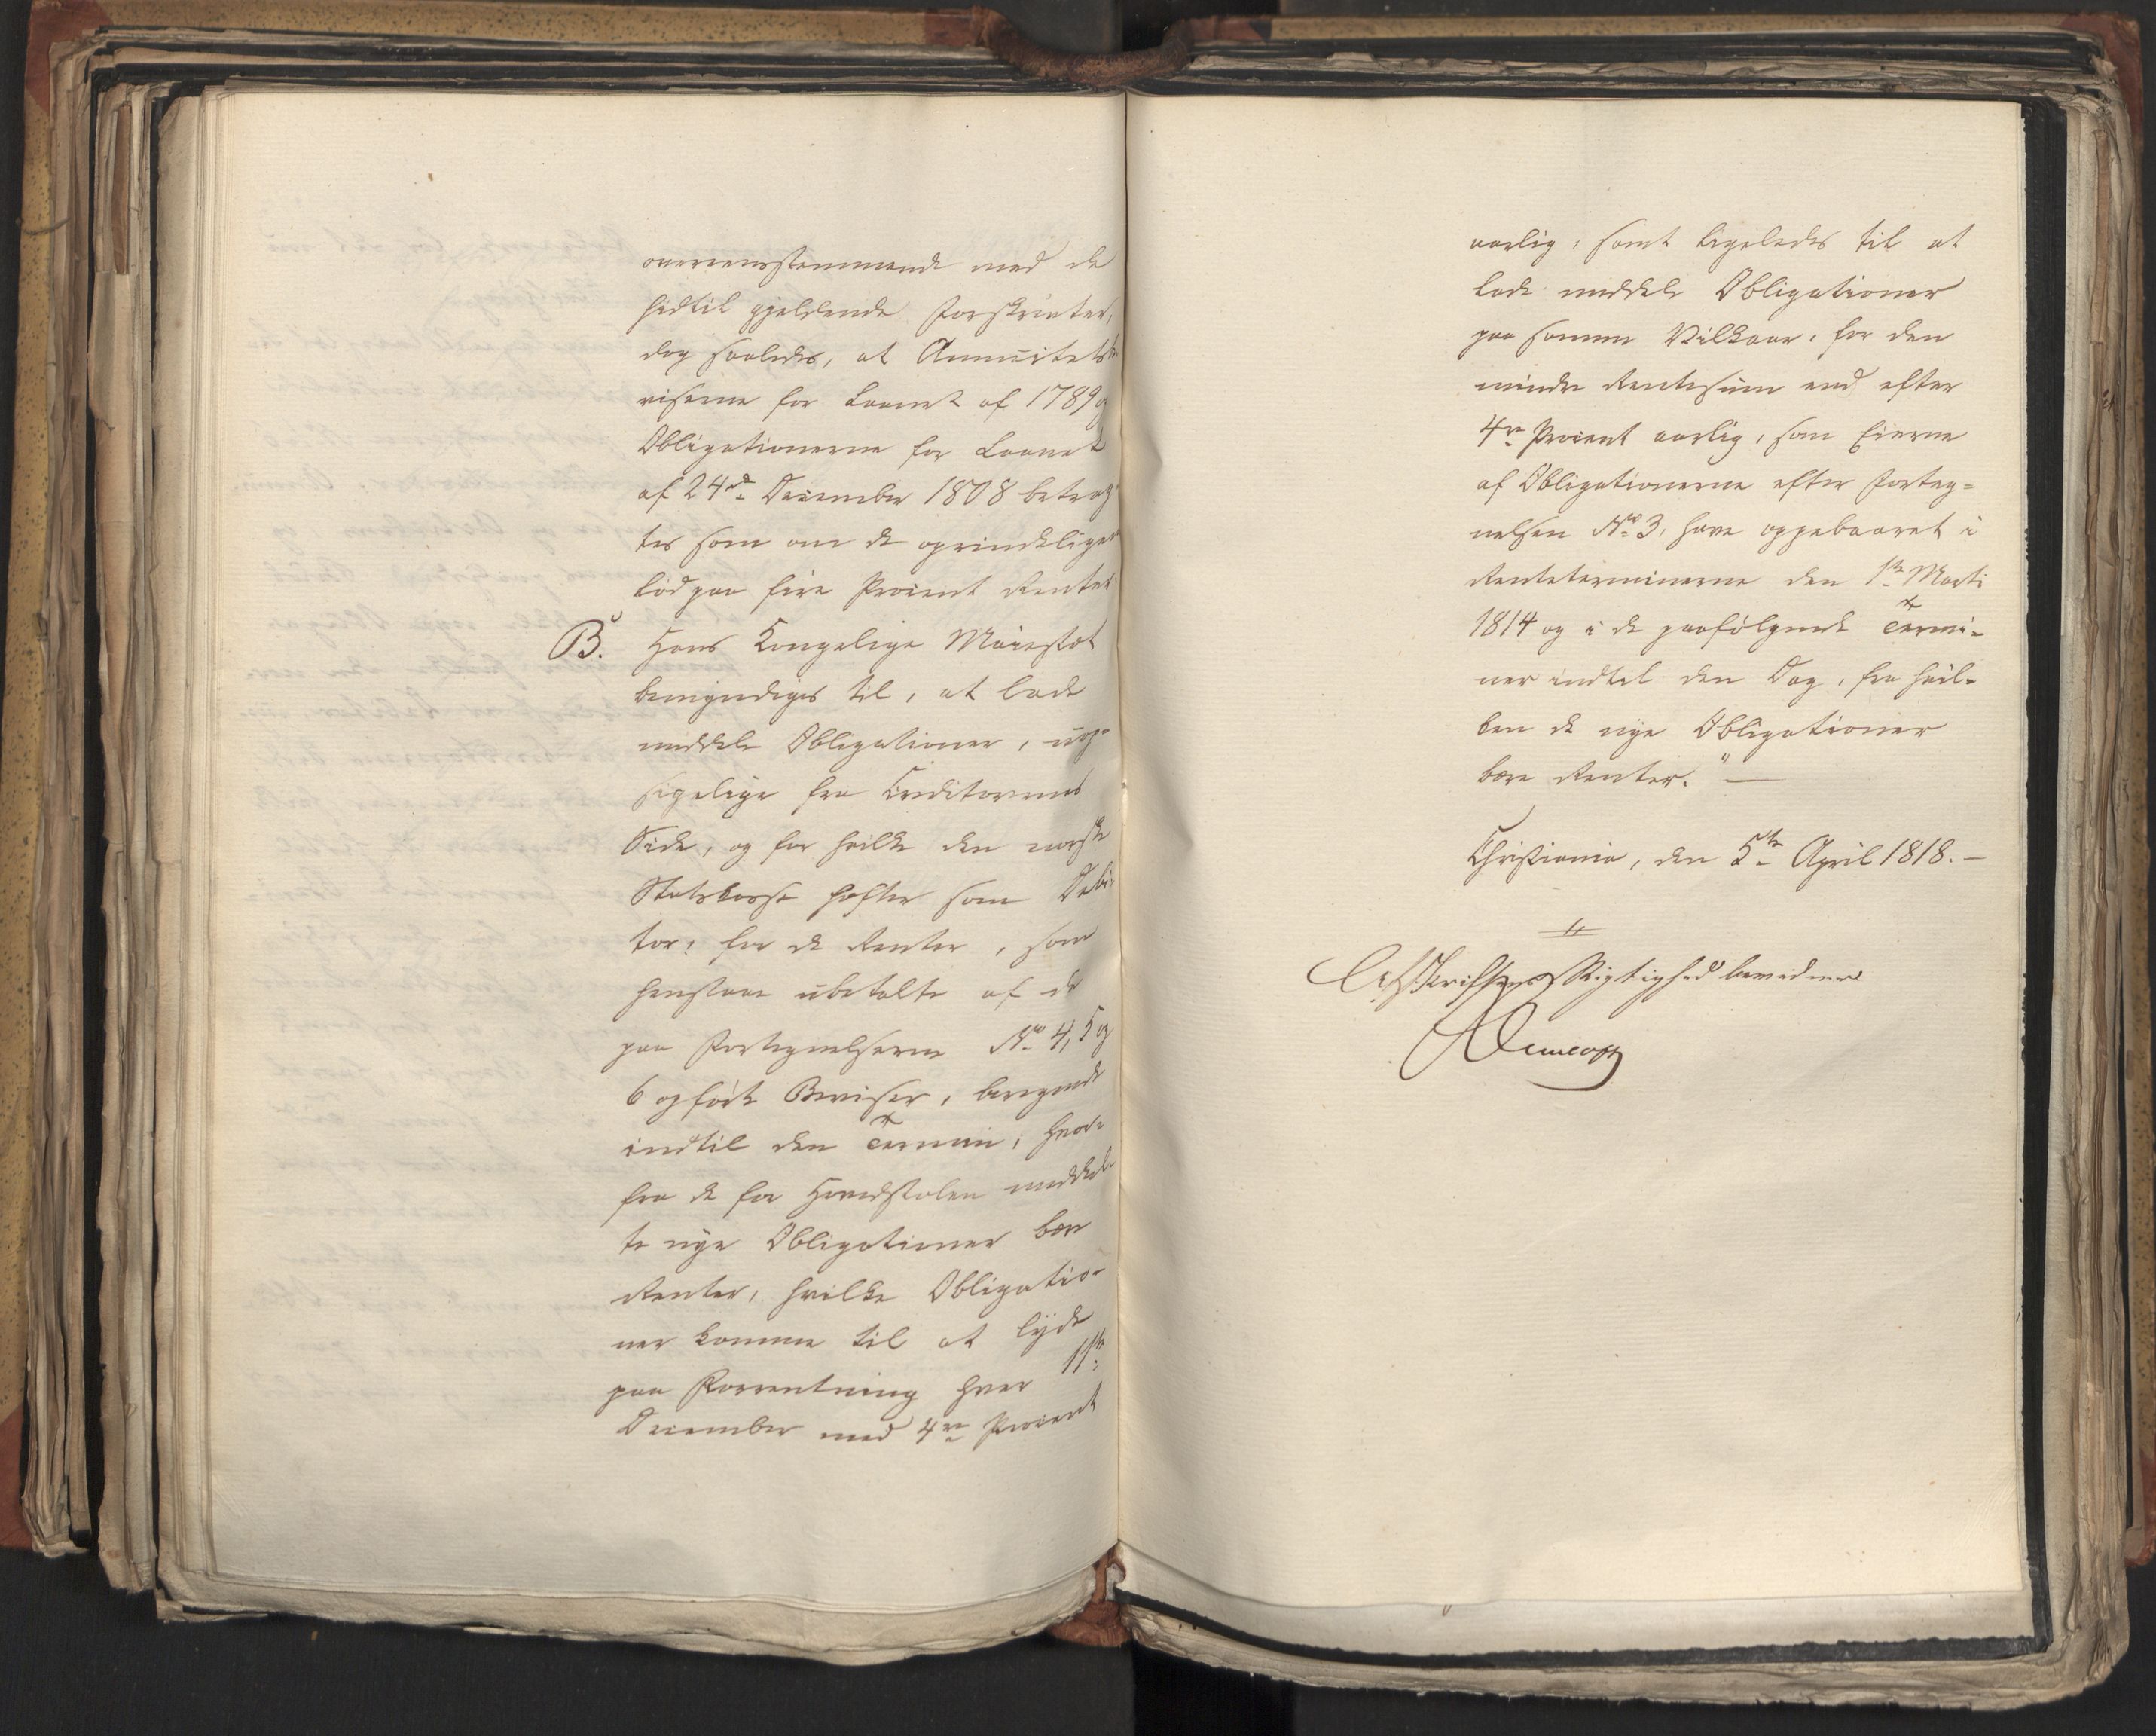 overeensstemmende med de
hidtil gjeldende Forskrivter,
dog saaledes, at Annuitetsbe
viserne for Laanet af 1789 og
Obligationerne for Laanet
af 24de December 1808 betrag-
tes som om de oprindeligen
lød paa fire Procent Renter.
B. Hans Kongelige Majestæt
bemyndiges til, at lade
meddele Obligationer, uop-
sigelige fra Creditorernes
Side, og for hvilke den norske
Statskasse hæfter som Debi-
tor, for de Renter, som
henstaae ubetalte af de
paa Fortegnelserne No 4, 5 og
6 opførte Beviser, beregnede
indtil den Termin, hvor-
fra de for Hovedstolen meddeel-
te nye Obligationer bære
Renter, hvilke Obligatio-
ner komme til at lyde
paa Forrentning hver 11te
December med 4re Procent
aarlig, samt ligeledes til at
lade meddele Obligationer
paa samme Vilkaar, for den
mindre Rentesum end efter
4re Procent aarlig, som Eierne
af Obligationerne efter Forteg-
nelsen No 3, have oppebaaret i
Renteterminerne den 1te Marti
1814 og i de paafølgende Termi-
ner indtil den Dag, fra hvil-
ken de nye Obligationer
bære Renter." —
Christiania, den 5te April 1818. —
Afskriftens Rigtighed bevidner